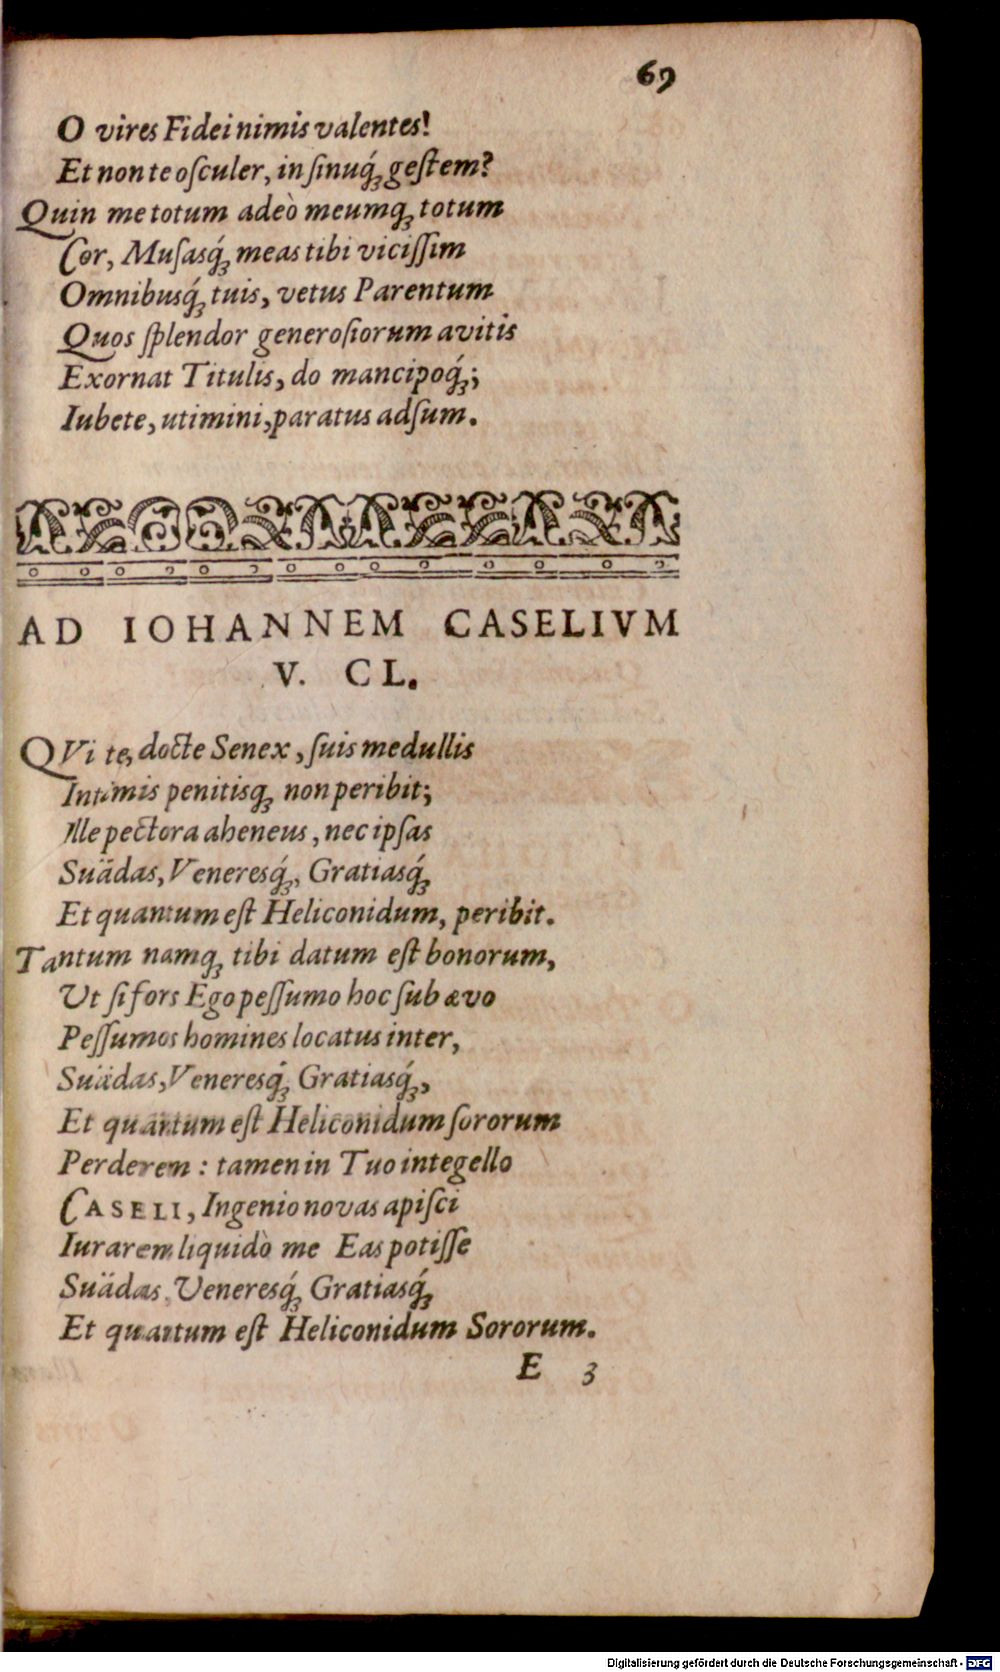 69
O vires Fidei nimis valentes!
Et non te oſculer, in ſinuq́ꝫ geſtem?
Quin me totum adeò meumqꝫ totum
Cor, Muſasq́ꝫ meas tibi viciſſim
Omnibusq́ꝫ tuis, vetus Parentum
Quos ſplendor generoſiorum avitis
Exornat Titulis, do mancipoq́ꝫ;
Iubete, utimini, paratus adſum.
AD IOHANNEM CASELIVM
V. CL.
QVi te, docte Senex, ſuis medullis
Intimis penitisqꝫ non peribit;
Ille pectora aheneus, nec ipſas
Suädas, Veneresq́ꝫ, Gratiasq́ꝫ
Et quantum eſt Heliconidum, peribit.
Tantum namqꝫ tibi datum eſt bonorum,
Ut ſi fors Ego peſſumo hoc ſub ævo
Peſſumos homines locatus inter,
Suädas, Veneresq́ꝫ Gratiasq́ꝫ,
Et quantum eſt Heliconidum ſororum
Perderem : tamen in Tuo integello
CASELI, Ingenio novas apiſci
Iurarem liquidò me Eas potiſſe
Suädas, Veneresq́ꝫ Gratiasq́ꝫ
Et quantum eſt Heliconidum Sororum.
E 3
Digitalisierung gefördert durch die Deutsche Forschungsgemeinschaft - DFG